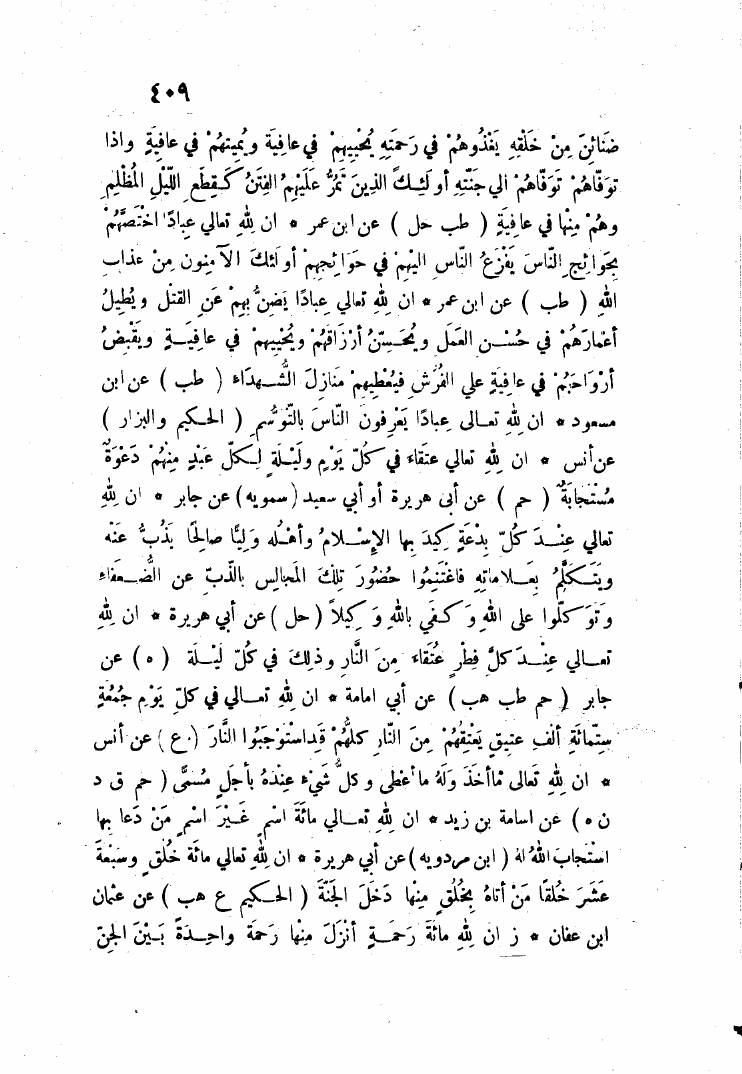 ٤٠٩
ضَنَائِنَ مِنْ خَلْقِهِ يَغْذُوهُمْ فِي رَحمَتِهِ يُحْيِيهِمْ في عافِيَةٍ ويُمِيتُهُمْ في عافِيَةٍ واذا
تَوَفَّاهُمْ تَوَفَّاهُمْ الي جَنَّتِهِ أولَئِكَ الذِينَ تَمُرُّ عَلَيْهِمُ الفِتَنُ كَقِطَعِ اللَّيْلِ المُظْلِمِ
وهُمْ مِنْها في عافِيَةٍ ( طب حل ) عن ابن عمر * ان لِلهِ تعالي عِبادًا اخْتَصَّهُمْ
بِحَوائِجِ النّاسِ يَفْزَعُ النّاس اليْهِمْ في حَوَائِجِهِمْ أولئكَ الآمِنون مِنْ عذابِ
اللهِ ( طب ) عن ابن عمر * ان لِلهِ تعالي عِبادًا يَضِنُّ بِهِمْ عَنِ القتل ويُطِيلُ
أعْمارَهُمْ في حُسْنِ العَمَلِ ويُحَسِّنُ أرْزَاقَهُمْ ويُحْيِيهِمْ في عافِيَةٍ ويَقْبِضُ
أرْوَاحَهُمْ في عافِيَةٍ علي الفُرُشِ فيُعْطِيهِمْ مَنازِلَ الشُّهداء ( طب ) عن ابن
مسعود * ان لِلهِ تعالى عِبادًا يَعْرِفونَ النّاسَ بالتَّوَسُّمِ ( الحكيم والبزار )
عن أنس * ان لِلهِ تعالي عتقاء في كلِّ يَوْمٍ ولَيْلَةٍ لِكلِّ عَبْدٍ مِنْهُمْ دَعْوَةٌ
مُسْتَجابَةٌ ( حم ) عن أبى هريرة أو أبي سعيد (سمويه) عن جابر * ان لِلهِ
تعالي عِنْدَ كُلِّ بِدْعَةٍ كِيدَ بِها الإسْلامُ وأهْلُه وَلِيًّا صالِحًا يَذُبُّ عَنْه
ويَتَكلَّمُ بِعَلاماتِهِ فاغْتَنِمُوا حُضُورَ تِلْكَ المَجالِسِ بالذَّبِّ عن الضُّعفاءِ
وتَوَكَّلُوا على اللهِ وَكَفي باللهِ وَكِيلاً (حل) عن أبي هريرة * ان لِلهِ
تعالي عِنْدَ كلِّ فِطْرٍ عُتَقاء مِنَ النَّارِ وذلِكَ في كُلِّ لَيْلَة (ه) عن
جابر (حم طب هب) عن أبي امامة * ان لِلهِ تعالي في كلِّ يَوْمِ جُمُعَةٍ
سِتَّمائَةِ ألفِ عتيقٍ يَعْتِقُهُمْ مِنَ النّارِ كلُّهُمْ قَدِ اسْتَوْجَبُوا النَّارَ (ع) عن أنس
* ان لِلهِ تَعالى ما أخَذَ وَلَهُ ما أعْطى وكلُّ شَيْءٍ عِنْدَهُ بأجَلٍ مُسَمًّى ( حم ق د
ن ه) عن اسامة بن زيد * ان لِلهِ تعالي مائَةَ اسْمٍ غَيْرَ اسْمٍ مَنْ دَعا بِها
اسْتَجابَ اللهُ لهُ ( ابن مردويه) عن أبي هريرة * ان لِلهِ تعالي مائة خُلُقٍ وسَبْعَةَ
عَشَرَ خُلقًا مَنْ أتاهُ بِخُلُقٍ مِنْها دَخَلَ الجَنَّةَ ( الحكيم ع هب ) عن عثمان
ابن عفان * ز ان لِلهِ مائَةَ رَحمَةٍ أنْزَلَ مِنْها رَحمَة واحِدةً بَيْنَ الجِنِّ